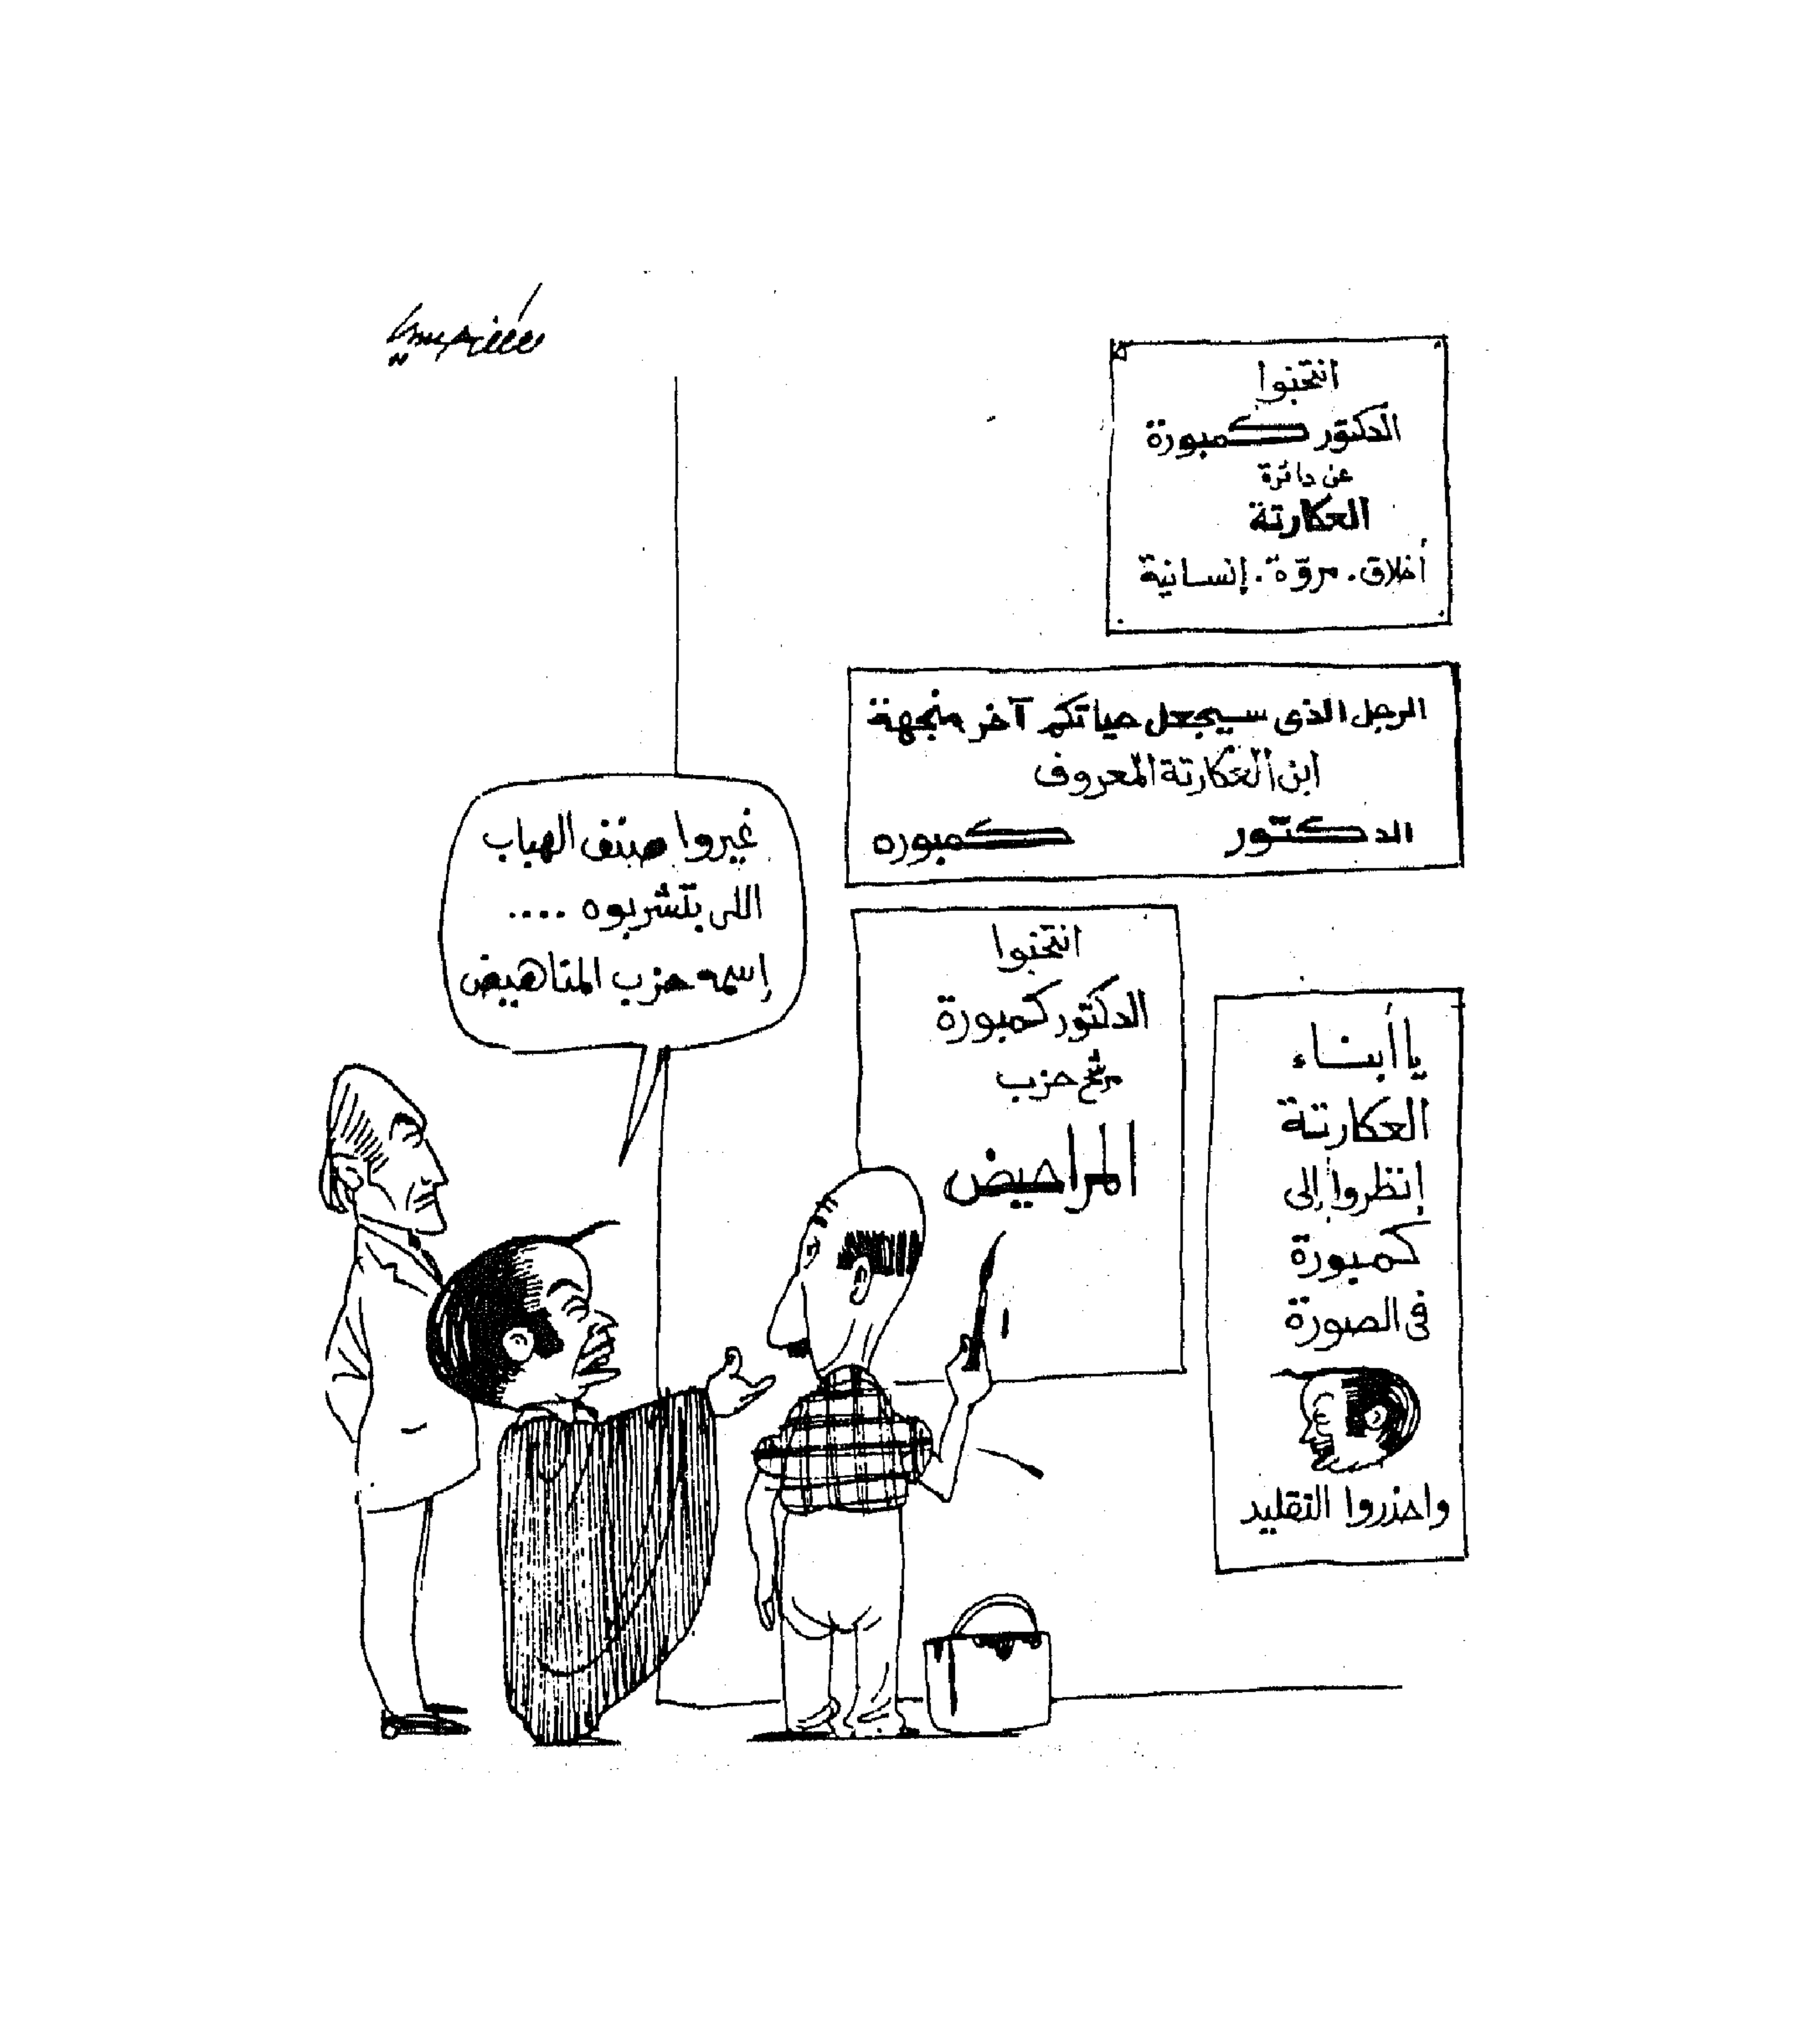 انتخبوا
الدكتور كمبورة
عن دائرة
العكارتة
أخلاق . مروّة . إنسانية
الرجل الذى سيجعل حياتكم آخر منجهة
ابن العكارتة المعروف
الدكتور كمبوره
انتخبوا
الدكتور كمبورة
مرشح حزب
المراحيض
يا أبناء
العكارتة
إنظروا إلى
كمبورة
فى الصورة
واحذروا التقليد
غيروا صنف الهباب
اللى بتشربوه ....
إسمه حزب المتاهيض